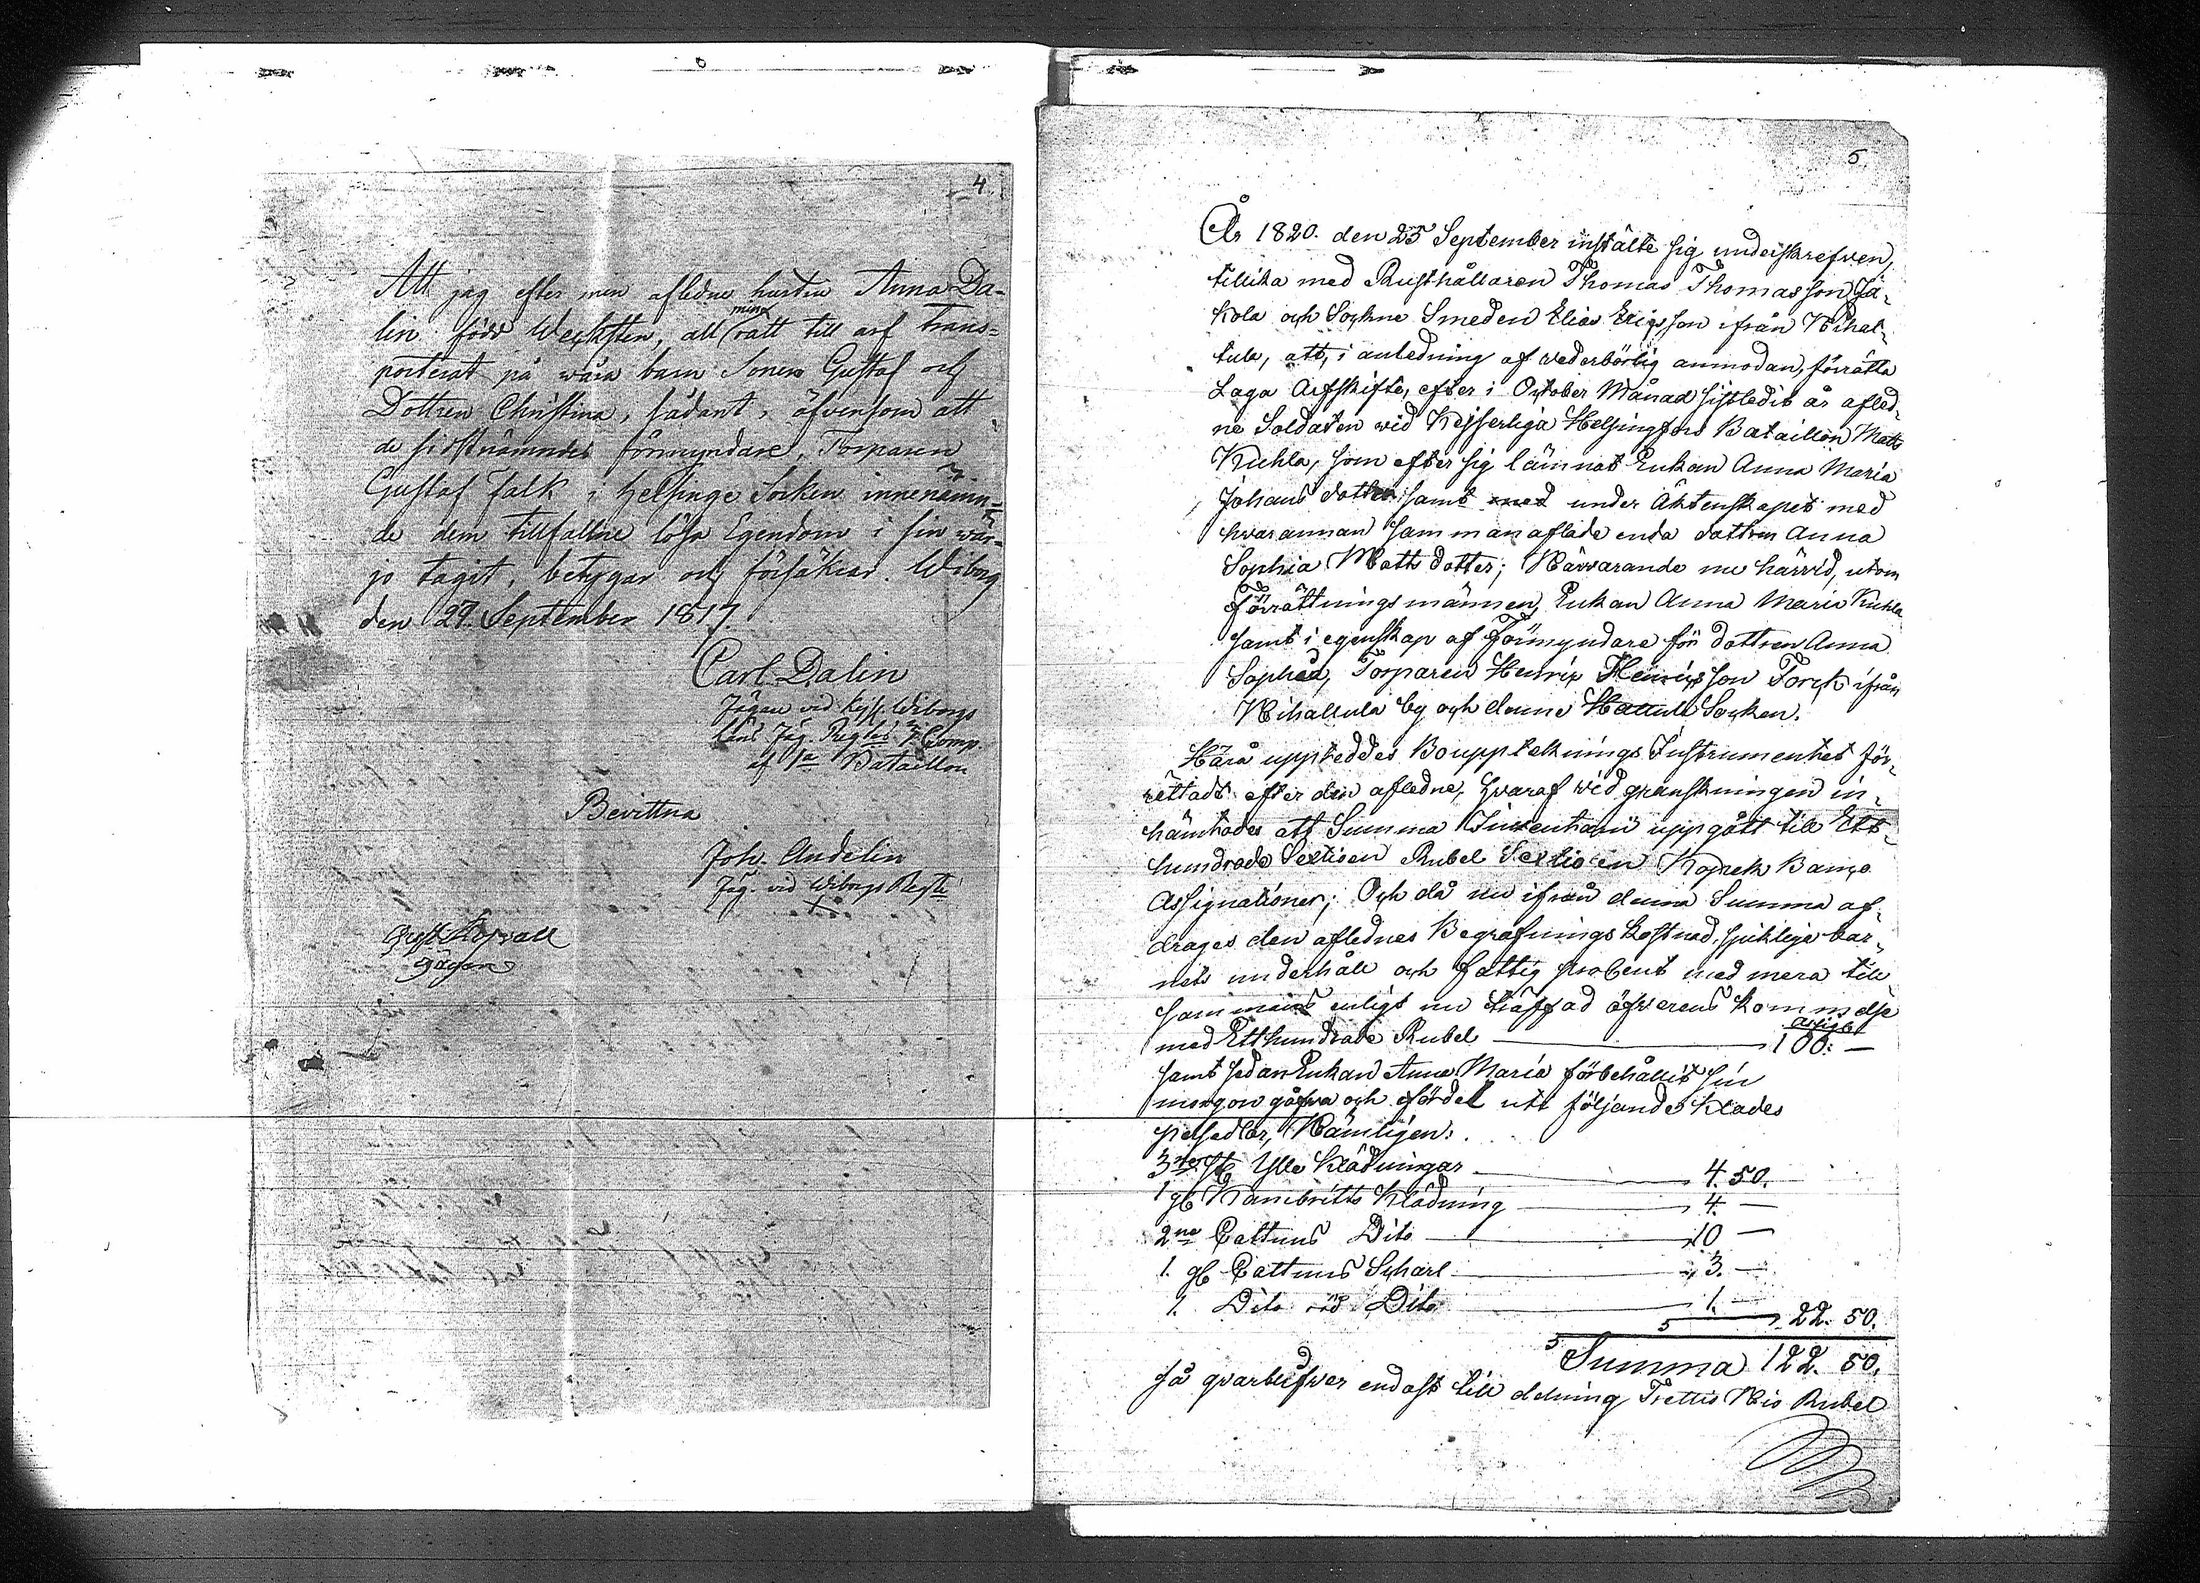 4
Att jag efter min afledne hustru Anna Da-
lin född Wecksten, all min rätt till arf trans-
porterat på wåra barn Sonen Gustaf och
Dottren Christina, sådant, äfvensom att
de sistnämndes förmyndare, Torparen
Gustaf Falk i Helsinge Socken innenämn-
de dem tillfallne lösa Egendom i sin wär-
jo tagit, betygar och försäkrar. Wiborg
den 27. September 1817.
Carl Dalin
Jägare vid Kejs. Wiborgs
Läns Jäg. Regtes Comp.
af 1a Bataillon
Bevittna
Joh. Andelin
Jäg. vid Wiborgs Regte
Gust.
Jägare
5
År 1820. den 25 September instälte sig underskrefven,
tillika med Rusthållaren Thomas Thomasson Ja-
kola och Sockne Smeden Elias Ericsson ifrån Nihat-
tula, att, i anledning af wederbörlig anmodan, förrätta
Laga Arfskifte, efter i October Månad sistledit år afled-
ne Soldaten wid Kejserliga Helsingfors Bataillon Matts
Kuhla, som efter sig lämnat Enkan Anna Maria
Johans dotter samt med under Äktenskapet med
hvarannan sammanaflade enda dottren Anna
Sophia Matts dotter; Närvarande nu härvid, utom
Förrättningsmännen, Enkan Anna Maria Kuhla
samt i egenskap af Förmyndare för dottren Anna
Sophia, Torparen Henric Henricsson Torck ifrån
Nihattula by och denne Hattula Socken.
Härå uppteddes Bouppteknings Instrumentet för-
rättadt efter den afledne, hvaraf vid granskningen in-
hämtades att Summa Inventarii uppgått till Ett-
hundrade Sextioen Rubel Sextioen Kopek Banco
Assignationer; Och då nu ifrån denna Summa af-
drages den aflednes Begrafnings kostnad, spikliga bar-
nets underhåll och fattig procent med mera till
sammans enligt nu träffad öfverens kommelse
med Etthundrade Rubel 100: —
samt sedan Enkan Anna Maria förbehållit sin
morgon gåfva och fördel utt följande Klädes
persedlar, Nämligen:
3ne st Ylle Klädningar 4. 50.
1 st Kambritts Klädning 4. —
2ne Cattuns Dito 10 —
1. st Cattuns Scharl 3. —
1. Dito röd Dito 1. —
22. 50.
Summa 122. 50.
så qvarblifver endast till delning Trettio Nio Rubel